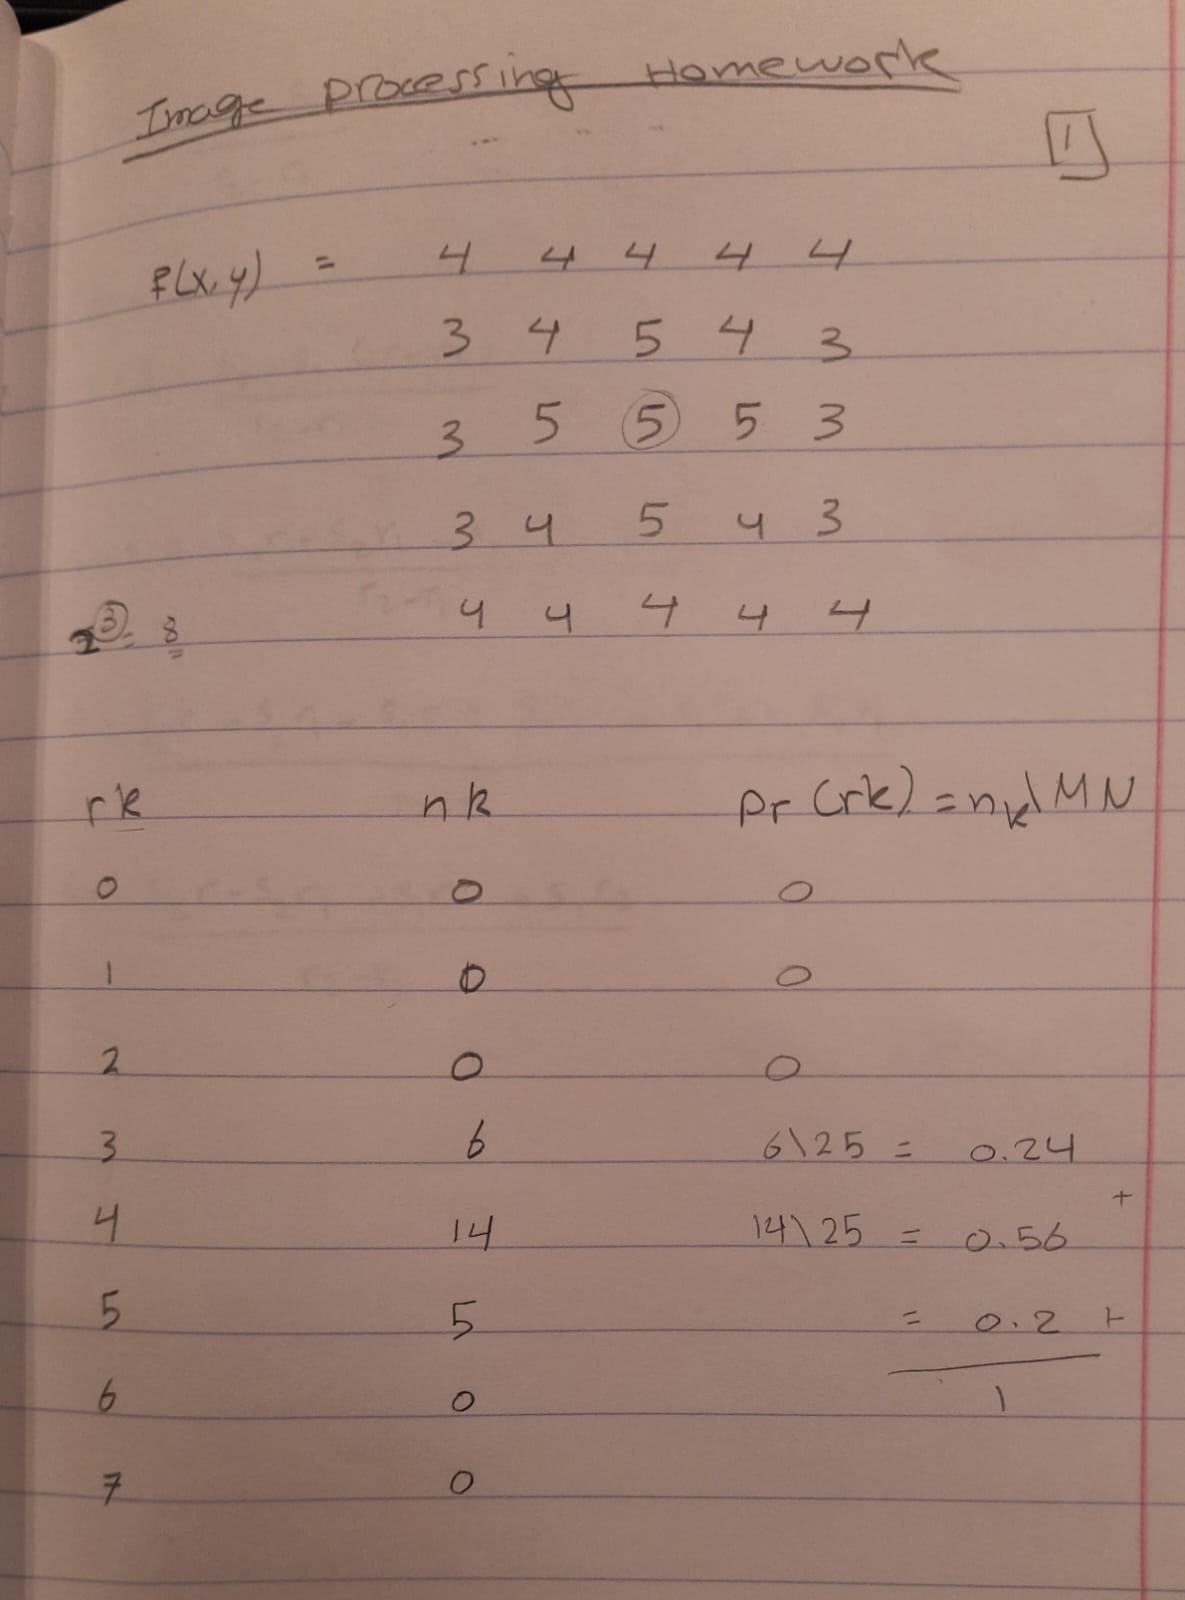 Image processing Homework
1
f(x,y) = 4 4 4 4 4
3 4 5 4 3
3 5 5 5 3
3 4 5 4 3
2³ = 8 4 4 4 4 4
rk nk pr (rk) = nk\MN
0 0 0
1 0 0
2 0 0
3 6 6\25 = 0.24
+
4 14 14\25 = 0.56
5 5 = 0.2 +
6 0 1
7 0